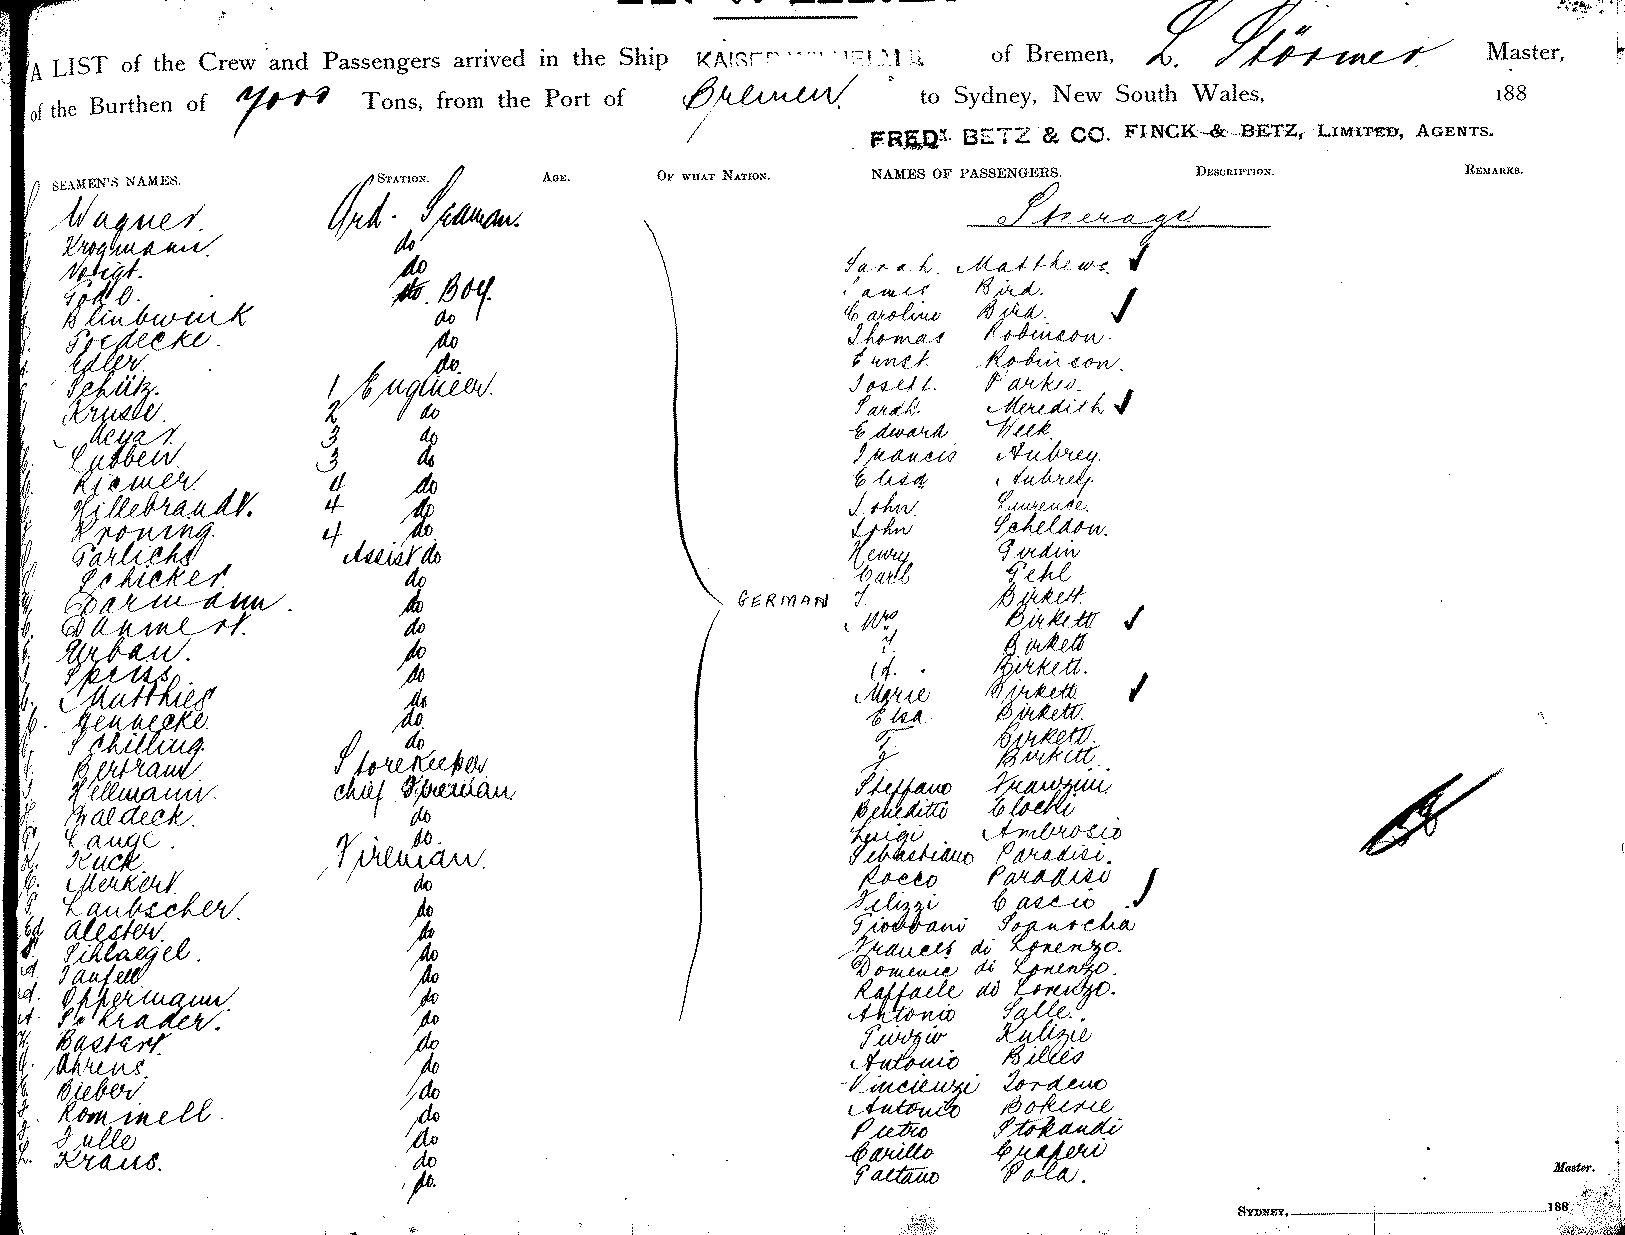 A LIST of the Crew and Passengers arrived in the Ship KAISER WILHELM II. of Bremen, L. Störmer Master,
of the Burthen of 7000 Tons, from the Port of Bremen. to Sydney, New South Wales, 188
FREDK. BETZ & CO. FINCK & BETZ, LIMITED, AGENTS.
SEAMEN'S NAMES. STATION. AGE. OF WHAT NATION. NAMES OF PASSENGERS. DESCRIPTION. REMARKS.
Wagner. Ord. Seaman.
Krogmann. do
Voigt. do
do. Boy.
do
Goedecke. do
Edler. do.
Schütz. 1 Engineer.
Kruse. 2 do
Meyer. 3 do
Lübben 3 do
Riemer 4 do
Hillebrandt. 4 do
Kroning. 4 do
Garlichs Assist do
Schicker. do
Barmann. do
Dammert. do
Urban. do
Speiss. do
Matthies do
Hennecke do
Schilling. do
Bertram Storekeeper
Hellmann. chief Fireman
Waldeck. do
Lange. do.
Kuck. Fireman.
Merkert. do
Laubscher. do
Alester. do
Schlaegel. do
do
Oppermann do
Schrader. do
Bastert. do
Ahrens. do
Bieber do
Rominell do
Tulle do
Kraus. do
do.
GERMAN
Steerage
Sarah Matthews
James Bird.
Caroline Bird.
Thomas Robinson.
Ernest Robinson.
Joseph Parker.
Sarah. Meredith
Edward Week
Francis Aubrey.
Elisa Aubrey.
John Laurence.
John Scheldon.
Henry Girdin
Carl Gehl
J. Birkett.
Mrs Birkett
J. Birkett
A. Birkett.
Marie Birkett
Elsa Birkett.
F Birkett.
Birkett.
Steffano Franzini
Beneditto Clochi
Luigi Ambrosio
Sebastiano Paradisi.
Rocco Paradisi
Filizzi Cascio
Giovani
Frances di Lorenzo.
Domenic di Lorenzo.
Raffaele di Lorenzo.
Antonio Salle.
Kulizie
Antonio Bilies
Vincienzi Tordeno
Antonio Bokerie
Pietro Stokandi
Carillo
Gaetano Pola.
Master.
SYDNEY, 188